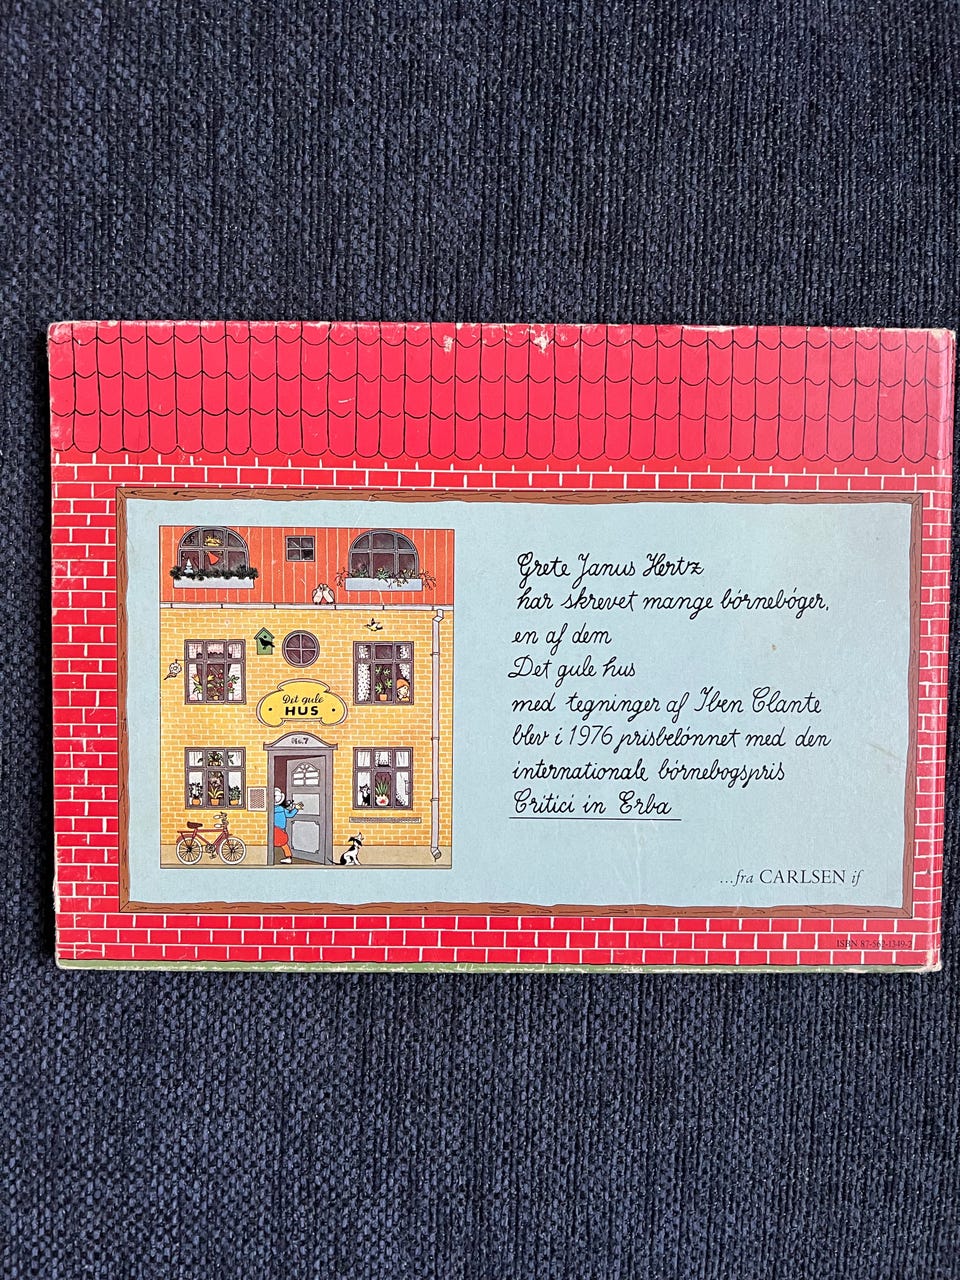 Det gule
HUS
No.7
Grete Janus Hertz
har skrevet mange børnebøger,
en af dem
Det gule hus
med tegninger af Iben Clante
blev i 1976 prisbelønnet med den
internationale børnebogspris
Critici in Erba
...fra CARLSEN if
ISBN 87-562-1349-2